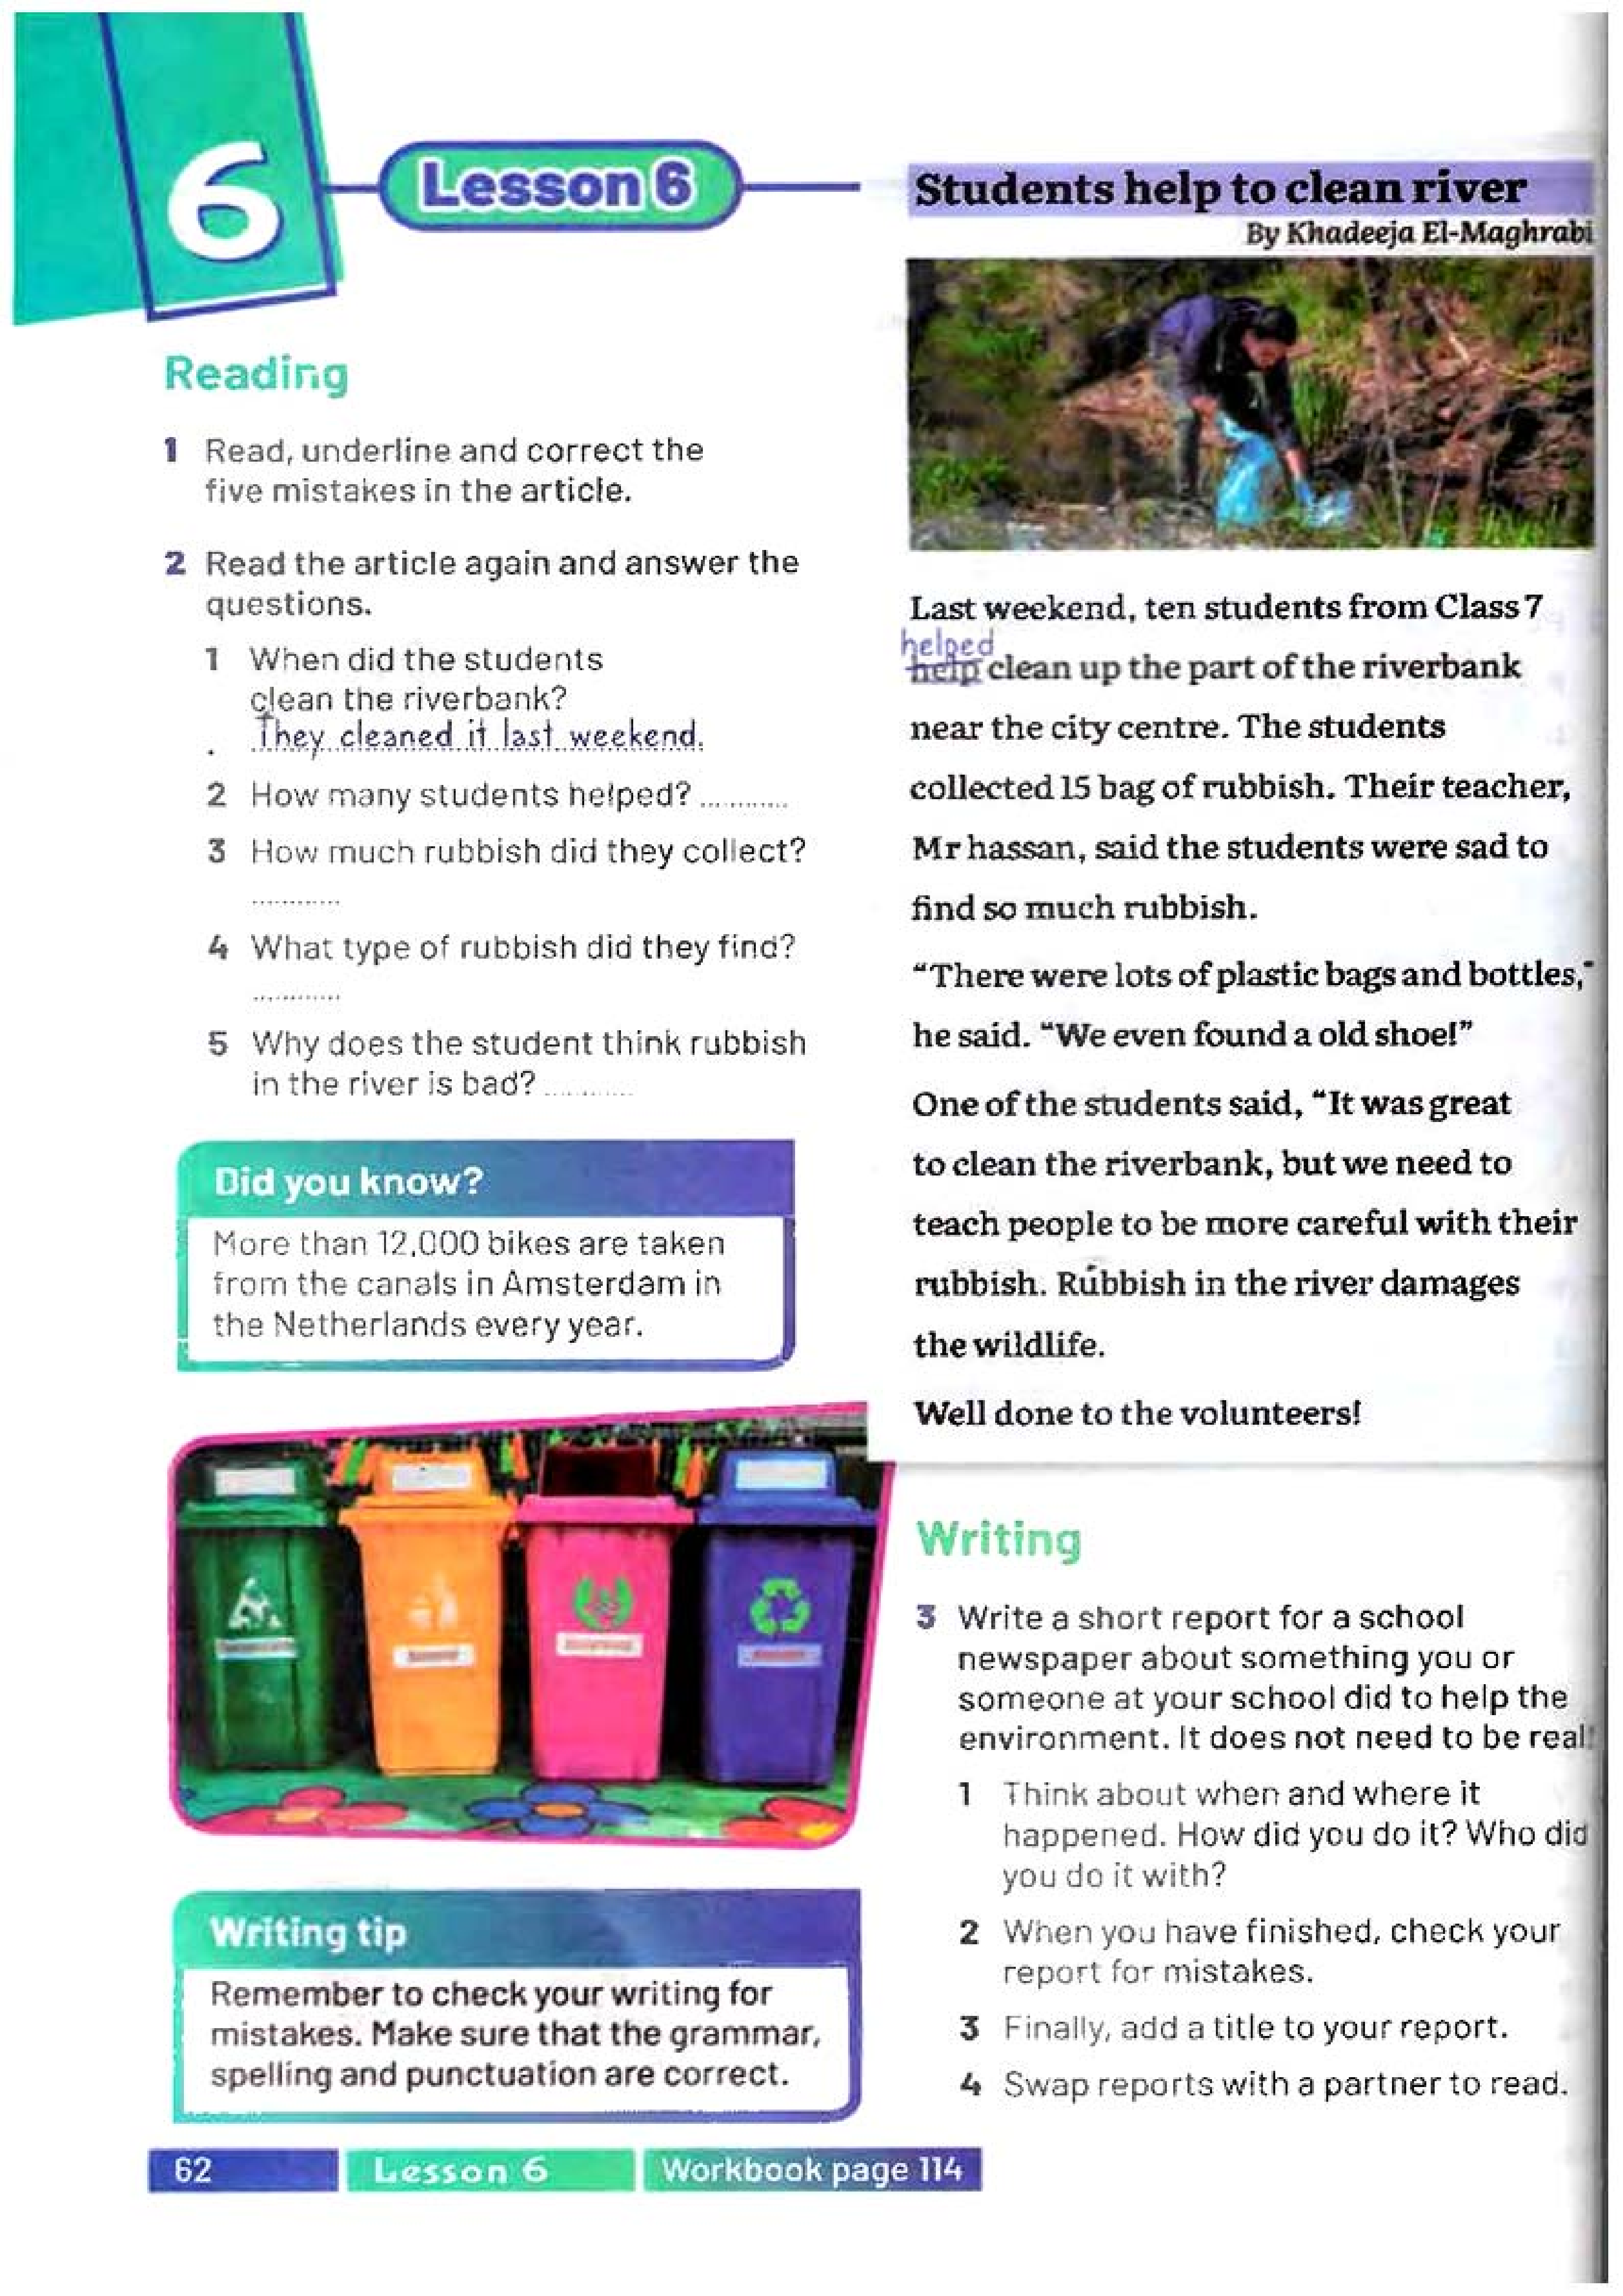 6
Lesson 6
Reading
1 Read, underline and correct the
five mistakes in the article.
2 Read the article again and answer the
questions.
1 When did the students
clean the riverbank?
They cleaned it last weekend.
2 How many students helped? ............
3 How much rubbish did they collect?
............
4 What type of rubbish did they find?
............
5 Why does the student think rubbish
in the river is bad? ............
Did you know?
More than 12,000 bikes are taken
from the canals in Amsterdam in
the Netherlands every year.
Writing tip
Remember to check your writing for
mistakes. Make sure that the grammar,
spelling and punctuation are correct.
Students help to clean river
By Khadeeja El-Maghrabi
Last weekend, ten students from Class 7
helped
help clean up the part of the riverbank
near the city centre. The students
collected 15 bag of rubbish. Their teacher,
Mr hassan, said the students were sad to
find so much rubbish.
“There were lots of plastic bags and bottles,”
he said. “We even found a old shoe!”
One of the students said, “It was great
to clean the riverbank, but we need to
teach people to be more careful with their
rubbish. Rubbish in the river damages
the wildlife.
Well done to the volunteers!
Writing
3 Write a short report for a school
newspaper about something you or
someone at your school did to help the
environment. It does not need to be real!
1 Think about when and where it
happened. How did you do it? Who did
you do it with?
2 When you have finished, check your
report for mistakes.
3 Finally, add a title to your report.
4 Swap reports with a partner to read.
62 Lesson 6 Workbook page 114